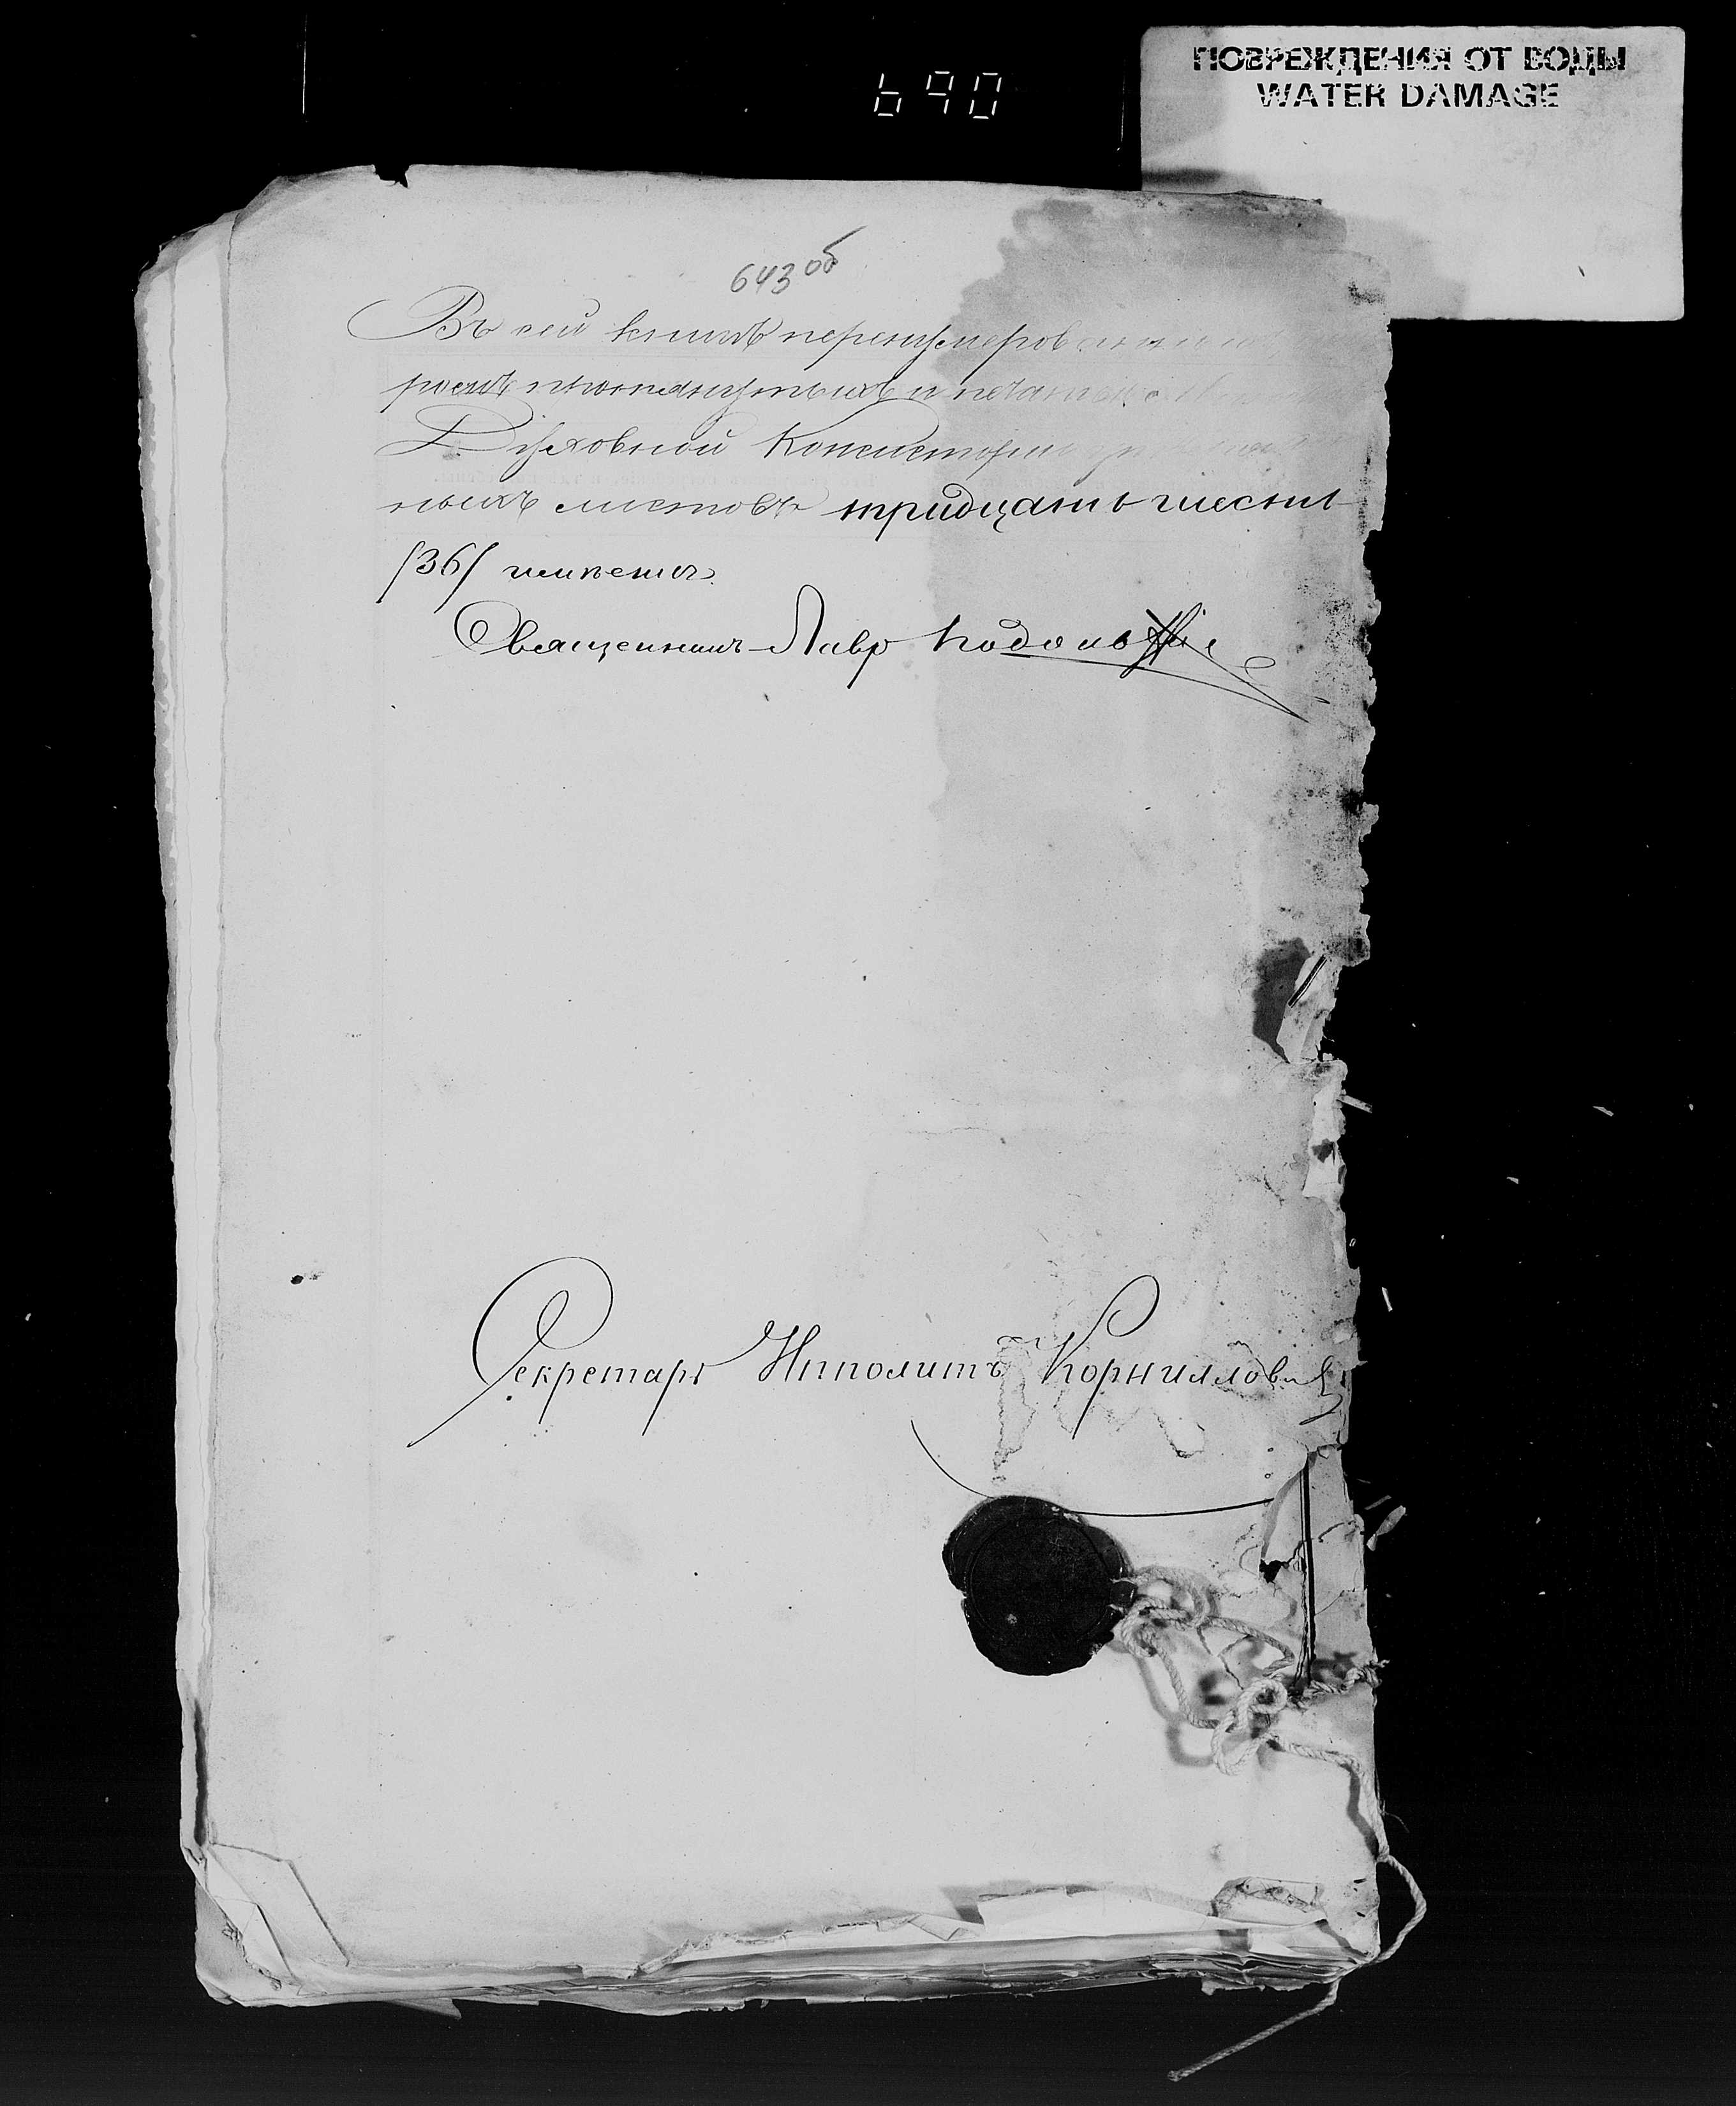 ПОВРЕЖДЕНИЯ ОТ ВОДЫ
WATER DAMAGE
690
643 об
Въ сей книгѣ перенумерованныхъ
прошнурованныхъ и печатью
Духовной Консисторіи
ныхъ листовъ тридцать шесть
/36/ имѣется.
Священникъ Лавр Подольскій
Секретарь Ипполитъ Корниллович